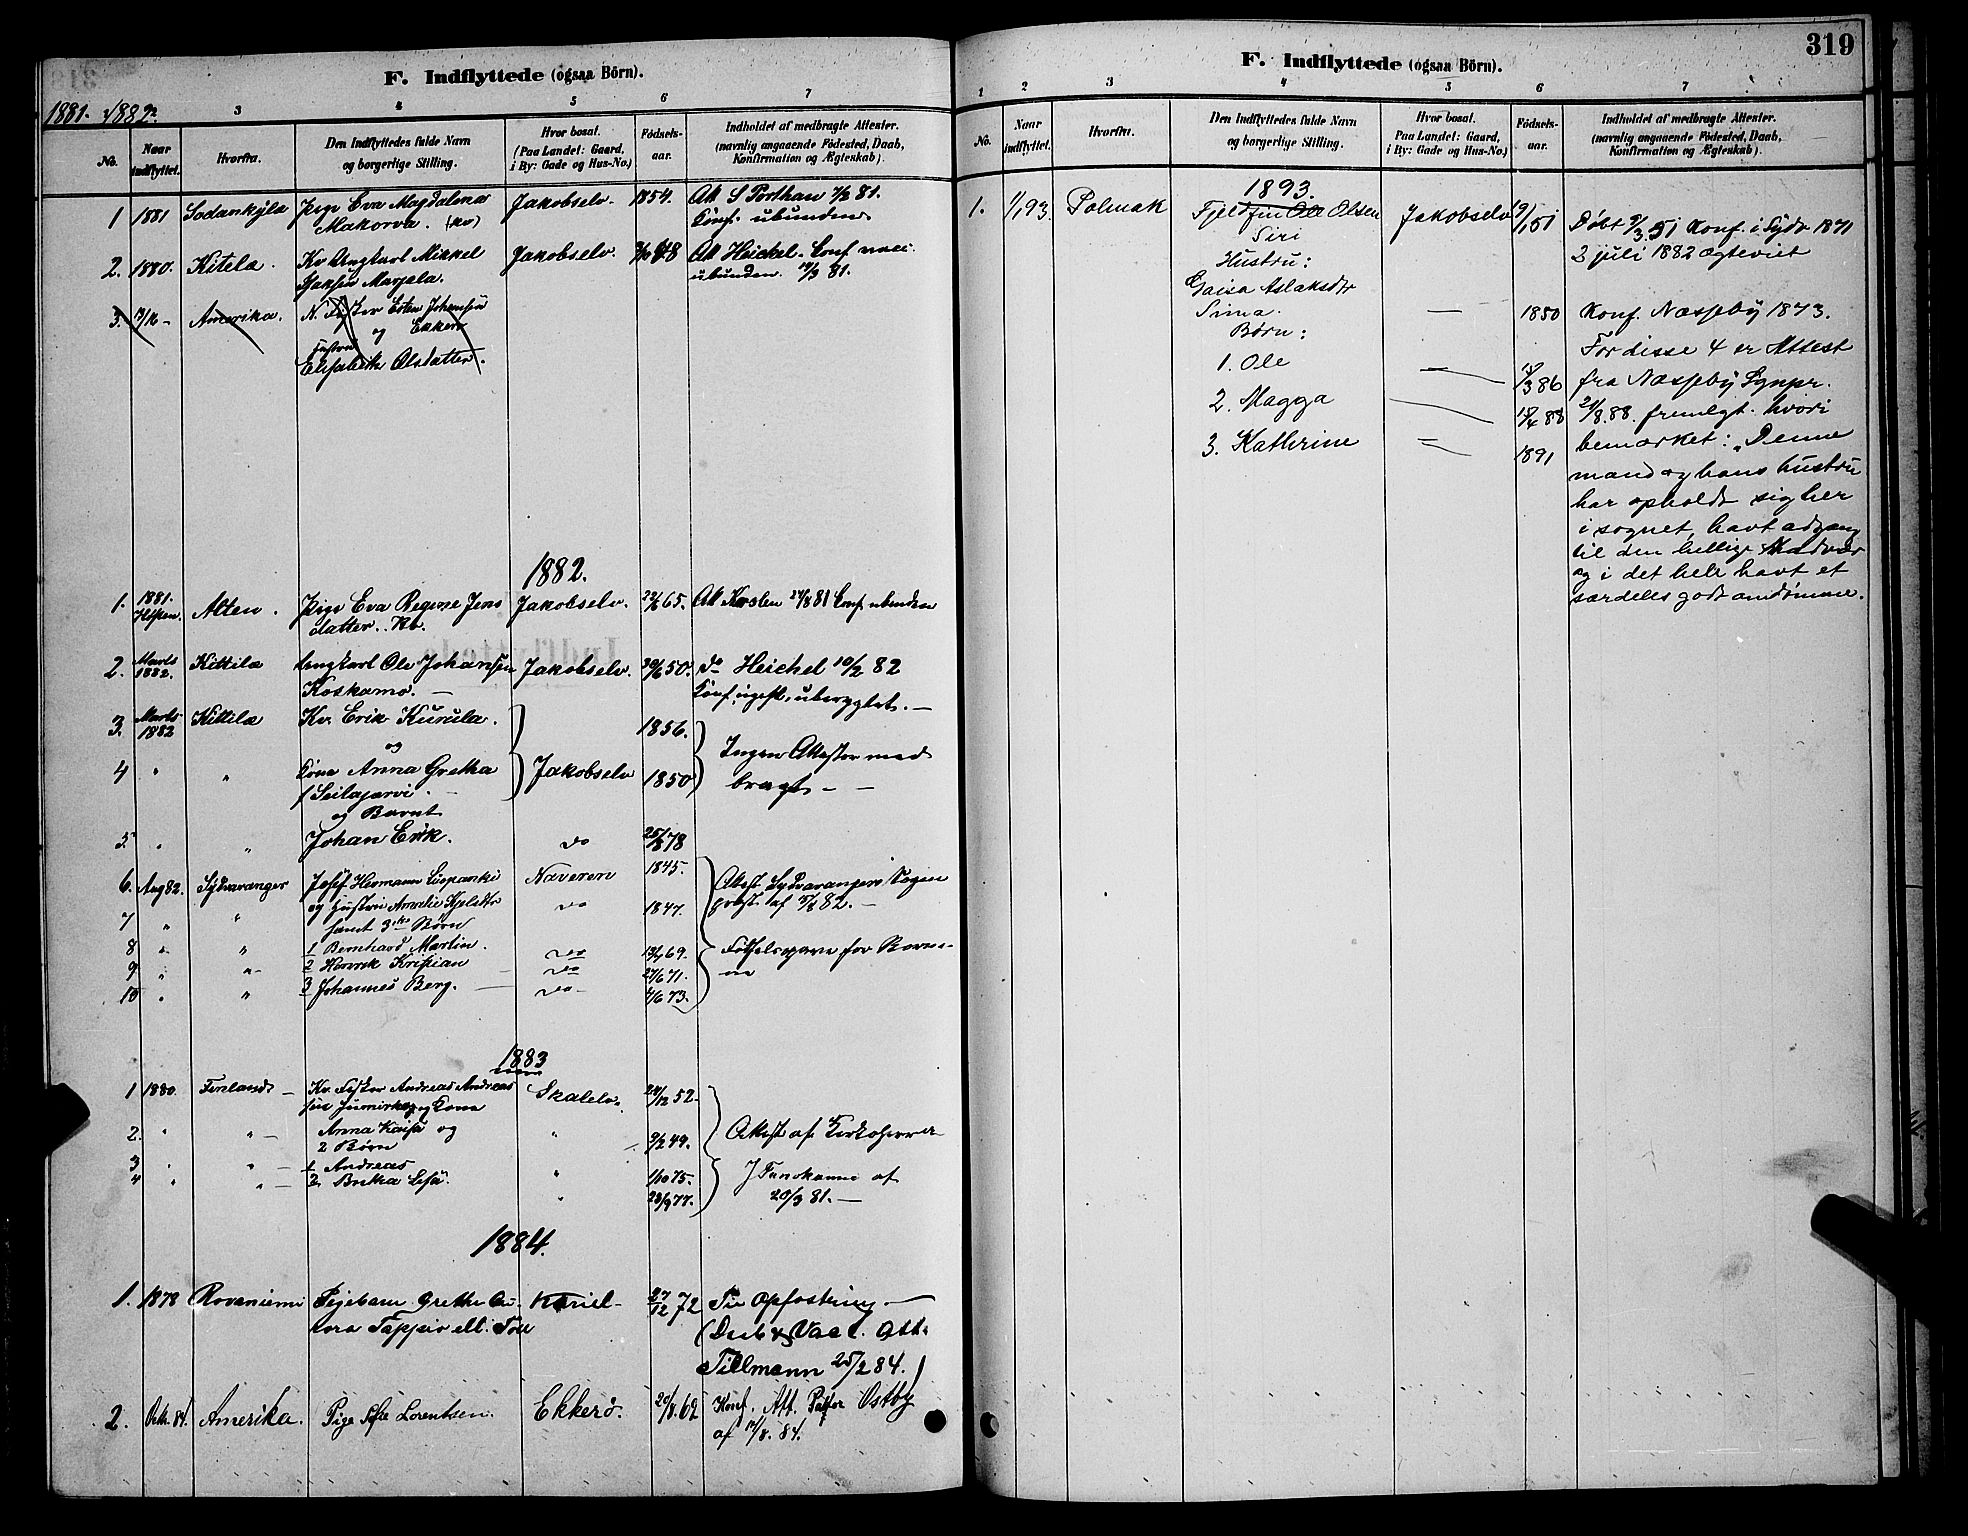 F. Indflyttede (ogsaa Börn).
1881. 1882.
3 4 5 6 7
No. Naar indflyttet. Hvorfra. Den Indflyttedes fulde Navn og borgerlige Stilling. Hvor bosat. (Paa Landet: Gaard, i By: Gade og Hus-No.) Födsels-aar. Indholdet af medbragte Attester. (navnlig angaaende Födested, Daab, Konfirmation og Ægteskab).
1 1881 Sodankylä Pige Eva Magdalena Jakobselv. 1854. Att S Porthan 7/2 81.
Makorva. (Kv) Conf. ubunden
2. 1880. Kitela. Kv Ungkarl Mikkel Jakobselv. 48 Att Heickel. Conf. vacc.
Isaksen Marjala. ubunden. 81.
3. Amerika. N. Fisker Esten Johansen
og Ekkerö
Hustru
Elisabeth Olsdatter.
1882.
1. 1881. Alten. Pige Eva Regine Jens Jakobselv. 65. Att Karsten 81 Conf ubunden
datter. Kv.
2. Marts 1882. Kittilä Ungkarl Ole Johansen Jakobselv. 50. do Heichel 10/2 82
Koskamo. — Conf, ugift, uberygtet. —
3. Marts 1882 Kittilä Kv. Erik Kurula. 1856.
og Ingen Attester med
4 " " Kone Anna Gretha Jakobselv 1850 bragt — —
f Seitajarvi. —
og Barnet
5. " " Johan Erik. do 78
6. Aug 82. Sydvaranger Josef Hermann Liopanki Naveren 1845. Attest Sydvarangers Sogne
7 " " og Hustru Amelie Kjeldtr do 1847. prest af 82. —
samt 3de Børn
8 " " 1 Bernhard Martin. do 69. Fødselsprøve for Børne-
9 " " 2 Henrik Kristian do 27/6 71. ne
10 " " 3 Johannes Berg. — do 4/6 73.
1883
1 1880. Finland — Kv. Fisker Andreas Andreas Skalelv. 24/12 52.
sen Jumisko og Kone
2. " " — Anna Kaisa og " 9/2 49. Attest af Kirkoherra
2 Børn
3 " " — 1 Andreas " 1/10 75. J Fanokanne af
4 " " — 2 Britha Lisa. " 23/9 77. 20/3 81. —
1884.
1. 1878 Rovaniemi Pigebarn Grethe Au- Kariel- 27/12 72 Til Opfostring —
rora Tappio ell. Toll (Deb & Vacc. Att.
Tillmann 25/2 84.)
2. Octr. 84. Amerika. Pige Sofie Lorentsen. Ekkerö. 20/8 62 Konf. Att. Pastor Ostby
af 84.
319
F. Indflyttede (ogsaa Börn).
1 2 3 4 5 6 7
No. Naar indflyttet. Hvorfra. Den Indflyttedes fulde Navn og borgerlige Stilling. Hvor bosat. Paa Landet: Gaard, i By: Gade og Hus-No.) Födsels-aar. Indholdet af medbragte Attester. (navnlig angaaende Födested, Daab, Konfirmation og Ægteskab).
1893.
1. 1/1 93. Polmak Fjeldfin Ole Olsen Jakobselv 9/1 51 Døbt 9/3 51 Konf. i Sydv 1871
Siri 2 juli 1882 ægteviet
Hustru:
Gaisa Aslaksdtr
Sima. — 1850 Konf. Næsseby 1873.
Børn: For disse 4 er Attest
1. Ole — 86 fra Næsseby Synpr.
2. Magga — 88 21/8.88. fremlgt. hvori
3. Kathrine — 1891 bemærket: "Denne
mand og hans hustru
har opholdt sig her
i sognet, havt adgang
til den hellige Nadver
og i det hele havt et
særdeles godt omdømme.